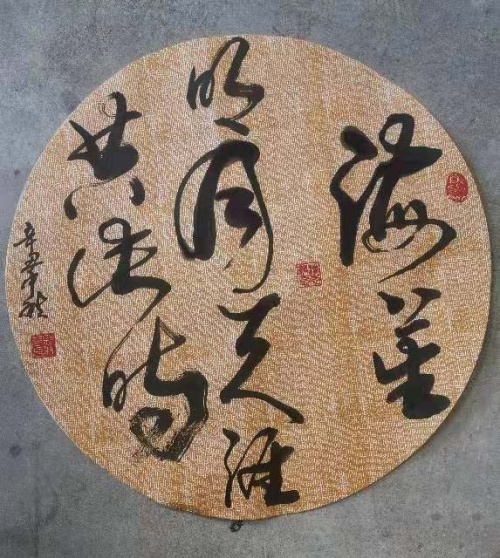 海上生
明月天涯
共此時
辛丑